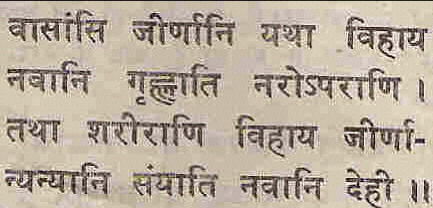 वासांसि जीर्णानि यथा विहाय
नवानि गृह्णाति नरोऽपराणि ।
तथा शरीराणि विहाय जीर्णा-
न्यन्यानि संयाति नवानि देही ॥